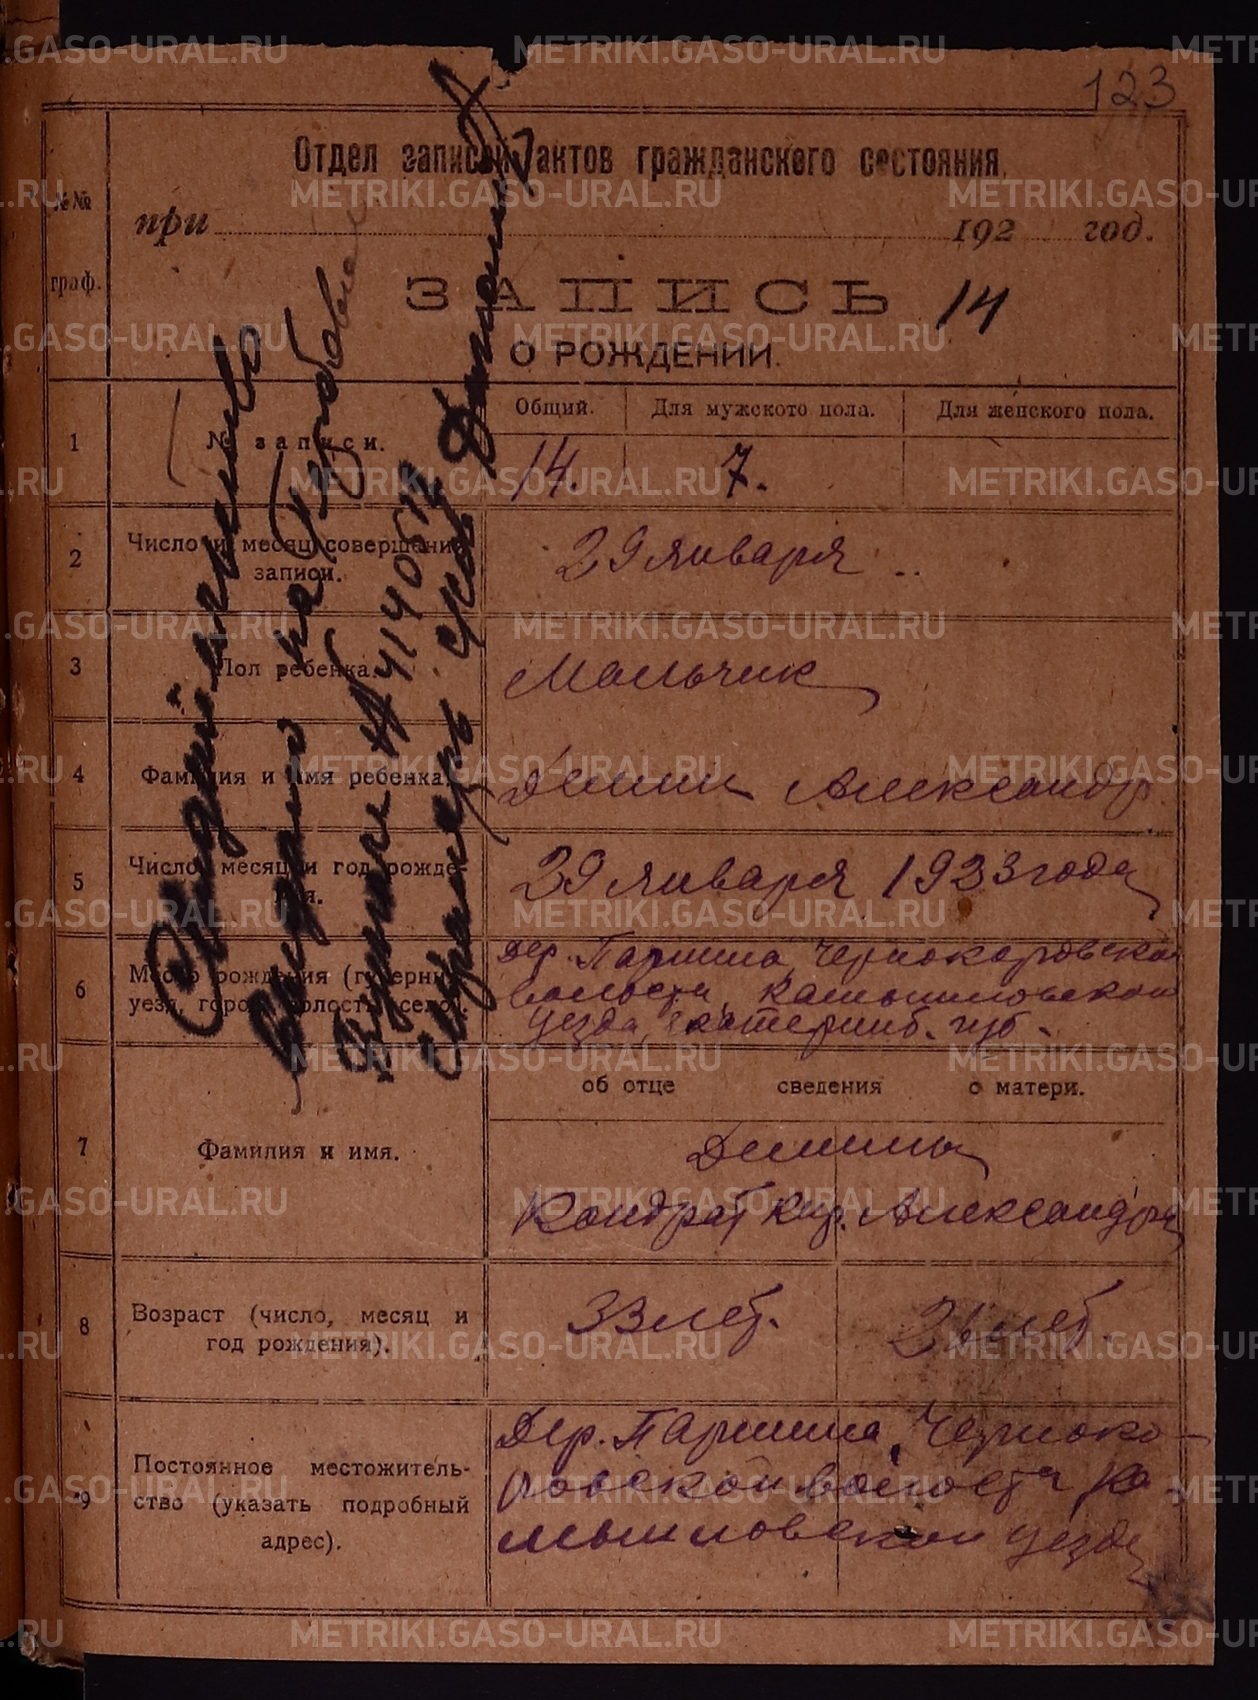 123
Отдел записей актов гражданского состояния.
№№ граф.
при 192 год.
ЗАПИСЬ 14
О РОЖДЕНИИ.
Общий. Для мужского пола. Для женского пола.
1 № записи. 14. 7.
2 Число и месяц совершения записи. 29 января
3 Пол ребенка. Мальчик
4 Фамилия и имя ребенка. Демин Александр
5 Число, месяц и год рождения. 29 января 1923 года
6 Место рождения (губерния, уезд, город, волость, село).
Дер. Паршина, Чернокоровской
волости, Камышловской
уезда, Екатеринб. губ.
об отце сведения о матери.
7 Фамилия и имя. Демины
Кондрат Кир. Александра
8 Возраст (число, месяц и год рождения). 33 лет.
лет.
9 Постоянное местожитель-
ство (указать подробный
адрес).
Дер. Паршина, Черноко-
ровской волости Ка-
мышловской уезда
Выдано на
№
METRIKI.GASO-URAL.RU